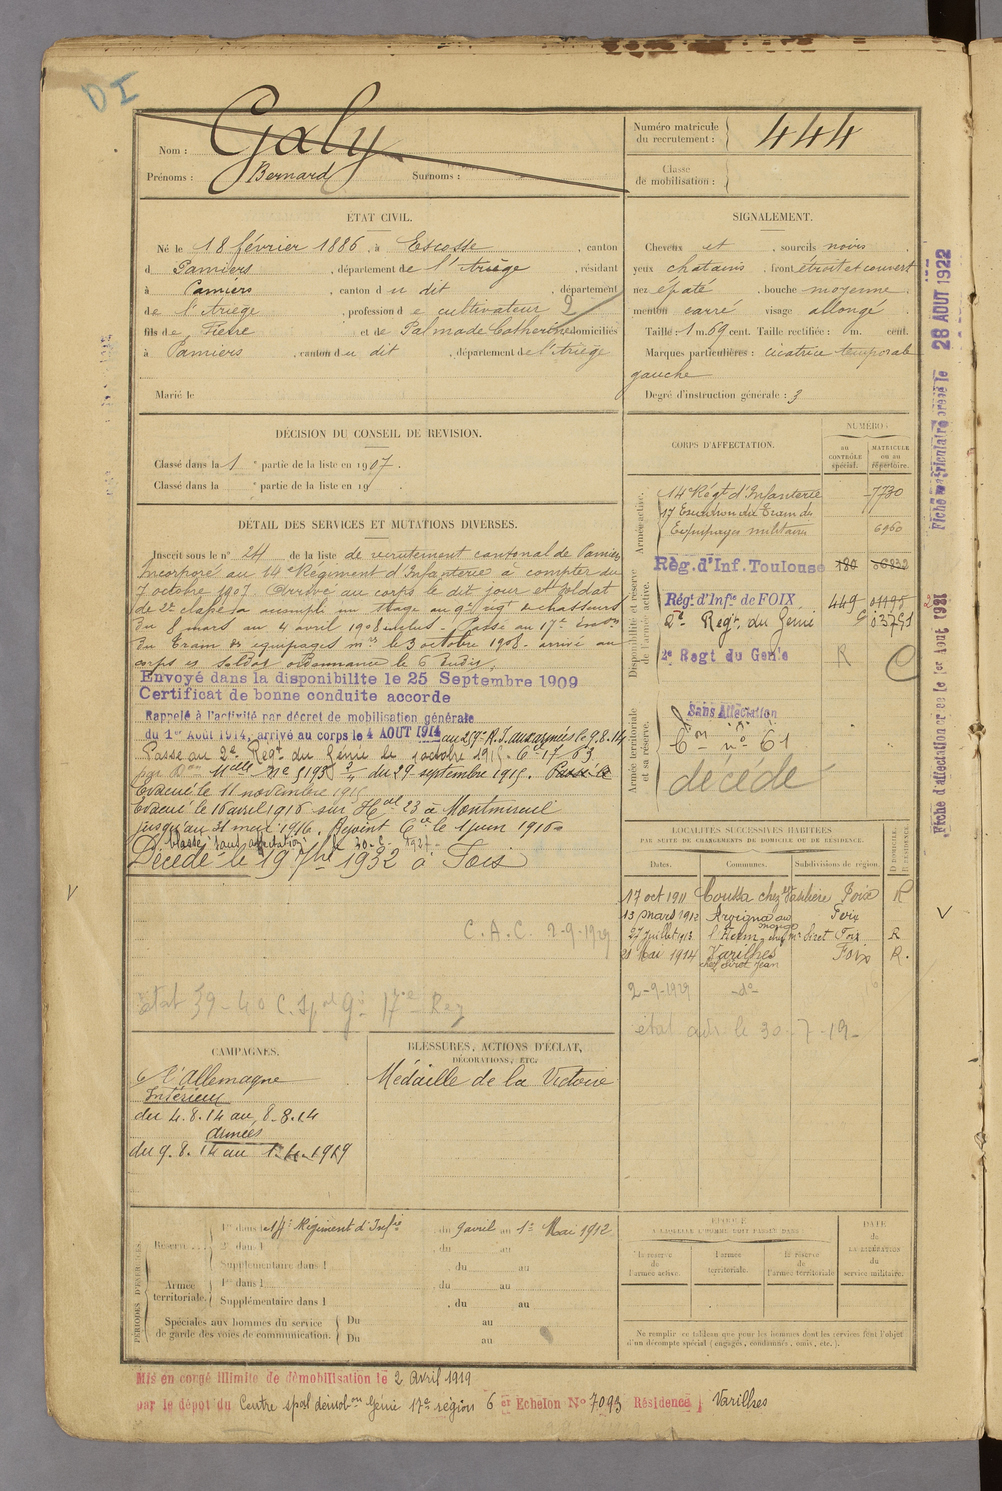 DI
Galy
Nom :
Prénoms : Bernard Surnoms :
Numéro matricule du recrutement : 444
Classe de mobilisation :
ÉTAT CIVIL.
Né le 18 février 1886, à Escosse, canton
d Pamiers, département de l'Ariège, résidant
à Pamiers, canton du dit, département
de l'Ariège, profession de cultivateur 2
fils de Pierre et de Palmade Catherine domiciliés
à Pamiers, canton du dit, département de l'Ariège
Marié le
SIGNALEMENT.
Cheveux et sourcils noirs
yeux chatains, front étroit et couvert
nez épaté, bouche moyenne
menton carré visage allongé
Taille : 1 m. 69 cent. Taille rectifiée : m. cent.
Marques particulières : cicatrice temporale
gauche
Degré d'instruction générale : 3
DÉCISION DU CONSEIL DE REVISION.
Classé dans la 1 e partie de la liste en 1907.
Classé dans la e partie de la liste en 19
DÉTAIL DES SERVICES ET MUTATIONS DIVERSES.
Inscrit sous le n° 24 de la liste de recrutement cantonal de Pamiers
Incorporé au 14e Régiment d'Infanterie à compter du
7 octobre 1907. Arrivé au corps le dit jour et soldat
de 2e classe. a accompli un stage au 9e rég t de chasseurs
du 8 mars au 4 avril 1908 inclus. Passé au 17e
du Train des équipages m res le 3 octobre 1908. arrivé au
corps et soldat ordonnance le 6 dudit.
Envoyé dans la disponibilite le 25 Septembre 1909
Certificat de bonne conduite accorde
Rappelé à l'activité par décret de mobilisation générale
du 1er Août 1914, arrivé au corps le 4 AOUT 1914 au 259e R.I. aux armées le 9.8.14
Passé au 2e Reg t du Génie le octobre 1915. Cie 17/63
du 29 septembre 1915. Passé à
Evacué le 11 novembre 1915
Evacué le 16 avril 1916 sur Hal 23 à Montmireil
jusqu'au 31 mai 1916. Rejoint Cie le 1 juin 1916
Classé "sans affectation" le 30-6-1927.
Décédé le 19 7bre 1932 à Foix
C.A.C. 2-9-1929
CORPS D'AFFECTATION.
NUMÉRO :
au CONTRÔLE spécial.
MATRICULE ou au répertoire.
Armée active.
14e Régt d'Infanterie 7730
17 Escadron du Train des
Equipages militaires 6960
Disponibilité et réserve de l'armée active.
Règ. d'Inf. Toulouse 180
Régt d'Infie de FOIX 449 01195
2e Regt du Génie 03751
2e Regt du Genie R C
Armée territoriale et sa réserve.
Sans Affectation
n° 61
décédé
Fiche matriculaire créée le 28 AOUT 1922
Fiche d'affectation créée le 1er Aout 1921
LOCALITÉS SUCCESSIVES HABITÉES
PAR SUITE DE CHANGEMENTS DE DOMICILE OU DE RÉSIDENCE.
Dates. Communes. Subdivisions de région. D. DOMICILE. R. RÉSIDENCE.
17 oct 1911 Coussa chez Foix R
13 mars 1912 Arvigna au Foix
27 juillet 1913 chez Mr Siret Foix R
21 Mai 1914 Varilhes Foix R.
chez Siret Jean
2-9-1929 -d°-
CAMPAGNES.
Cre l'Allemagne
Intérieur
du 4.8.14 au 8.8.14
Armées
du 9.8.14 au 1.4.1919
BLESSURES, ACTIONS D'ÉCLAT,
DÉCORATIONS, ETC.
Médaille de la Victoire
PÉRIODES D'EXERCICES
Réserve 1re dans le 14e Régiment d'Infie du 9 avril au 1er Mai 1912
2e dans l du au
Supplémentaire dans l , du au
Armée territoriale. 1re dans l , du au
Supplémentaire dans l , du au
Spéciales aux hommes du service de garde des voies de communication. Du au
Du au
ÉPOQUE
À LAQUELLE L'HOMME DOIT PASSER DANS
la réserve de l'armée active.
l'armée territoriale.
la réserve de l'armée territoriale
DATE de LA LIBÉRATION du service militaire.
Ne remplir ce tableau que pour les hommes dont les services font l'objet
d'un décompte spécial (engagés, condamnés, omis, etc.).
Mis en congé illimité de démobilisation le 2 Avril 1919
par le dépôt du Centre spal démobon Génie 17e région 6 er Echelon No 7093 Résidence Varilhes